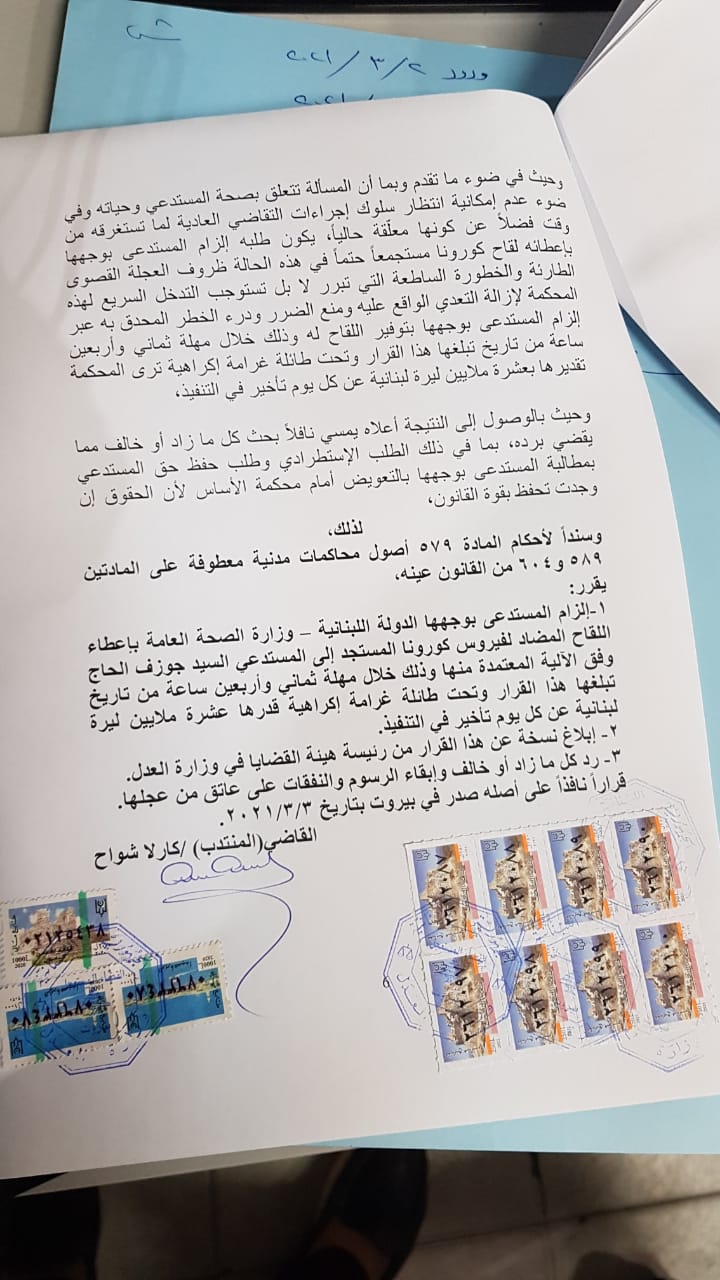 ورود ٢ / ٣ / ٢٠٢١
وحيث في ضوء ما تقدم وبما أن المسألة تتعلق بصحة المستدعي وحياته وفي
ضوء عدم إمكانية انتظار سلوك إجراءات التقاضي العادية لما تستغرقه من
وقت فضلاً عن كونها معلّقة حالياً، يكون طلبه إلزام المستدعى بوجهها
بإعطائه لقاح كورونا مستجمعاً حتماً في هذه الحالة ظروف العجلة القصوى
الطارئة والخطورة الساطعة التي تبرر لا بل تستوجب التدخل السريع لهذه
المحكمة لإزالة التعدي الواقع عليه ومنع الضرر ودرء الخطر المحدق به عبر
إلزام المستدعى بوجهها بتوفير اللقاح له وذلك خلال مهلة ثماني وأربعين
ساعة من تاريخ تبلغها هذا القرار وتحت طائلة غرامة إكراهية ترى المحكمة
تقديرها بعشرة ملايين ليرة لبنانية عن كل يوم تأخير في التنفيذ،
وحيث بالوصول إلى النتيجة أعلاه يمسي نافلاً بحث كل ما زاد أو خالف مما
يقضي برده، بما في ذلك الطلب الإستطرادي وطلب حفظ حق المستدعي
بمطالبة المستدعى بوجهها بالتعويض أمام محكمة الأساس لأن الحقوق إن
وجدت تحفظ بقوة القانون،
لذلك،
وسنداً لأحكام المادة ٥٧٩ أصول محاكمات مدنية معطوفة على المادتين
٥٨٩ و٦٠٤ من القانون عينه،
يقرر:
١-إلزام المستدعى بوجهها الدولة اللبنانية – وزارة الصحة العامة بإعطاء
اللقاح المضاد لفيروس كورونا المستجد إلى المستدعي السيد جوزف الحاج
وفق الآلية المعتمدة منها وذلك خلال مهلة ثماني وأربعين ساعة من تاريخ
تبلغها هذا القرار وتحت طائلة غرامة إكراهية قدرها عشرة ملايين ليرة
لبنانية عن كل يوم تأخير في التنفيذ.
٢- إبلاغ نسخة عن هذا القرار من رئيسة هيئة القضايا في وزارة العدل.
٣- رد كل ما زاد أو خالف وإبقاء الرسوم والنفقات على عاتق من عجلها.
قراراً نافذاً على أصله صدر في بيروت بتاريخ ٢٠٢١/٣/٣.
القاضي(المنتدب) /كارلا شواح
6